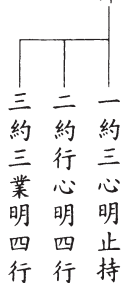 一約三心明止持
二約行心明四行
三約三業明四行